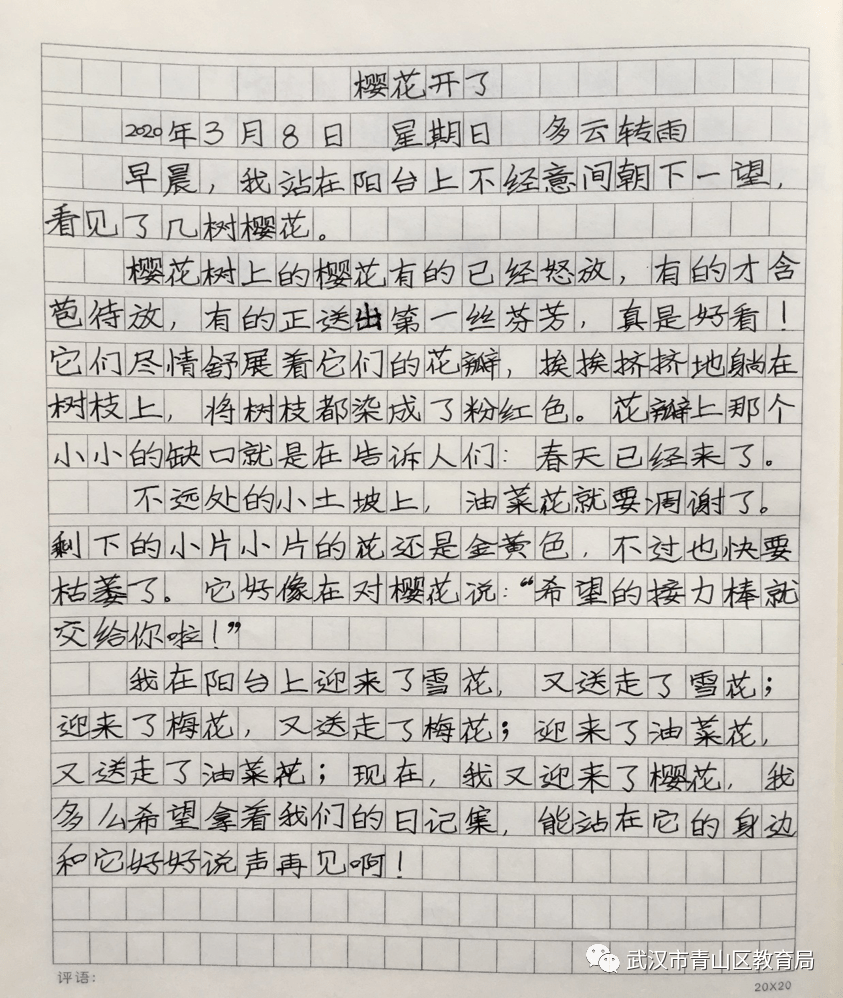 樱花开了
2020年3月8日 星期日 多云转雨
早晨，我站在阳台上不经意间朝下一望，
看见了几树樱花。
樱花树上的樱花有的已经怒放，有的才含
苞待放，有的正送出第一丝芬芳，真是好看！
它们尽情舒展着它们的花瓣，挨挨挤挤地躺在
树枝上，将树枝都染成了粉红色。花瓣上那个
小小的缺口就是在告诉人们：春天已经来了。
不远处的小土坡上，油菜花就要凋谢了。
剩下的小片小片的花还是金黄色，不过也快要
枯萎了。它好像在对樱花说：“希望的接力棒就
交给你啦！”
我在阳台上迎来了雪花，又送走了雪花；
迎来了梅花，又送走了梅花；迎来了油菜花，
又送走了油菜花；现在，我又迎来了樱花，我
多么希望拿着我们的日记集，能站在它的身边
和它好好说声再见啊！
评语：
20X20
武汉市青山区教育局